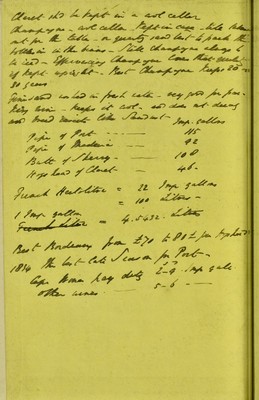 Claret shd be kept in a cool cellar
Champagne - cool cellar
not for the table - or quantity sand best to pack the
bottles in the bins - Still Champagne always to
be iced - Effervescing Champagne loses that quality
if kept upright. Best Champagne keeps 20 or
30 years
in fresh - very good for
keeps it cool - and does not decay
and
Imp. gallons
Pipe of Port 115
Pipe of Madeira 92
Butt of Sherry 108
Hogshead of Claret 46
French Hectolitre = 22 Imp gallons
= 100 Litres -
1 Imp. gallon
= 4.5432 Litres
Best Bordeaux from £70 to 80£ per hogshead
1834 the last late Season for Port -
Cape Wines pay duty 2-9 Imp gall
Other wines 5-6